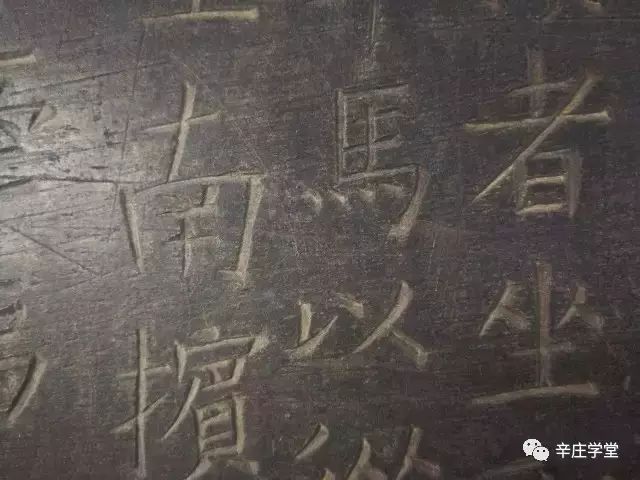 者坐
馬以
南擯
辛庄学堂